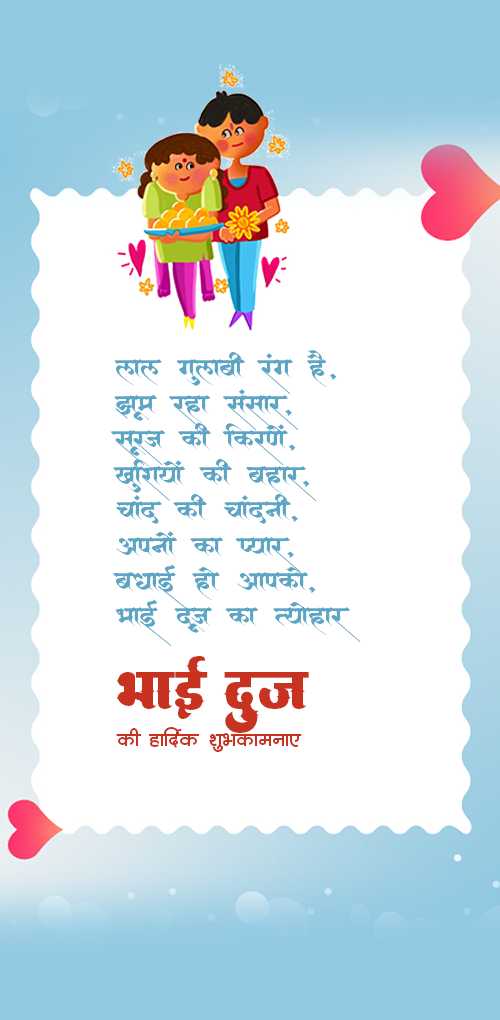 लाल गुलाबी रंग है,
झूम रहा संसार,
सूरज की किरणें,
खुशियों की बहार,
चांद की चांदनी,
अपनों का प्यार,
बधाई हो आपको,
भाई दूज का त्योहार
भाई दुज
की हार्दिक शुभकामनाए